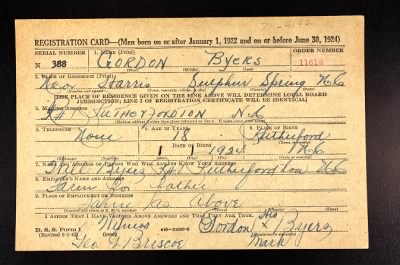 REGISTRATION CARD—(Men born on or after January 1, 1922 and on or before June 30, 1924)
SERIAL NUMBER 1. NAME (Print) ORDER NUMBER
N 388 GORDON BYERS 11618
2. PLACE OF RESIDENCE (Print)
Near Harris Sulphur Spring N.C
THE PLACE OF RESIDENCE GIVEN ON THE LINE ABOVE WILL DETERMINE LOCAL BOARD
JURISDICTION; LINE 2 OF REGISTRATION CERTIFICATE WILL BE IDENTICAL
3. MAILING ADDRESS
RUTHERFORDTON N.C
4. TELEPHONE 5. AGE IN YEARS 6. PLACE OF BIRTH
None 18 Rutherford
DATE OF BIRTH
1 1924 N.C
7. NAME AND ADDRESS OF PERSON WHO WILL ALWAYS KNOW YOUR ADDRESS
Will Byers Rutherfordton N.C
8. EMPLOYER'S NAME AND ADDRESS
Farm for father
9. PLACE OF EMPLOYMENT OR BUSINESS
Same as Above
I AFFIRM THAT I HAVE VERIFIED ABOVE ANSWERS AND THAT THEY ARE TRUE.
D. S. S. Form 1 Witness Gordon x Byers
(Revised 6-9-42) Geo Briscoe his Mark